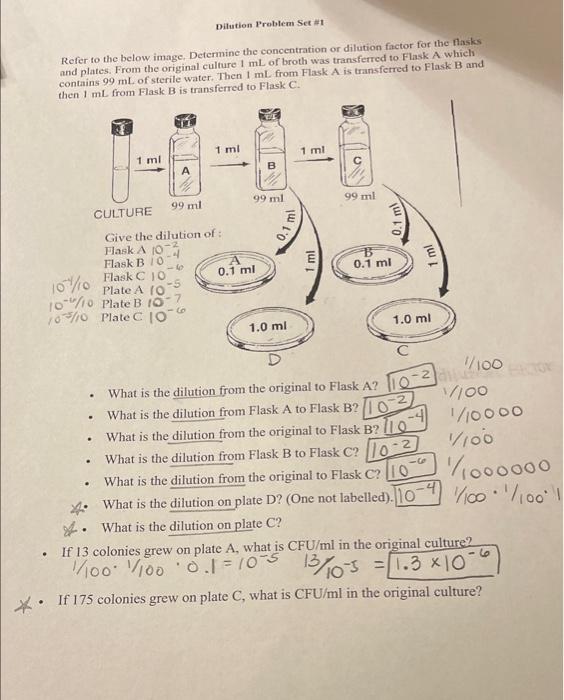 Dilution Problem Set #1
Refer to the below image. Determine the concentration or dilution factor for the flasks
and plates. From the original culture 1 mL of broth was transferred to Flask A which
contains 99 mL of sterile water. Then 1 mL from Flask A is transferred to Flask B and
then 1 mL from Flask B is transferred to Flask C.
1 ml
1 ml
1 ml
A
B
C
CULTURE
99 ml
99 ml
99 ml
0.1 ml
1 ml
0.1 ml
1 ml
Give the dilution of :
Flask A 10⁻²
Flask B 10⁻⁴
Flask C 10⁻⁶
10⁻⁴/10 Plate A 10⁻⁵
10⁻⁶/10 Plate B 10⁻⁷
10⁻⁵/10 Plate C 10⁻⁶
A
0.1 ml
B
0.1 ml
1.0 ml
D
1.0 ml
C
• What is the dilution from the original to Flask A? 10⁻² 1/100
• What is the dilution from Flask A to Flask B? 10⁻² 1/100
• What is the dilution from the original to Flask B? 10⁻⁴ 1/10000
• What is the dilution from Flask B to Flask C? 10⁻² 1/100
• What is the dilution from the original to Flask C? 10⁻⁶ 1/1000000
• What is the dilution on plate D? (One not labelled). 10⁻⁴ 1/100 · 1/100 · 1
• What is the dilution on plate C?
• If 13 colonies grew on plate A, what is CFU/ml in the original culture?
1/100 · 1/100 · 0.1 = 10⁻⁵ 13/10⁻⁵ = 1.3 x 10⁻⁶
• If 175 colonies grew on plate C, what is CFU/ml in the original culture?